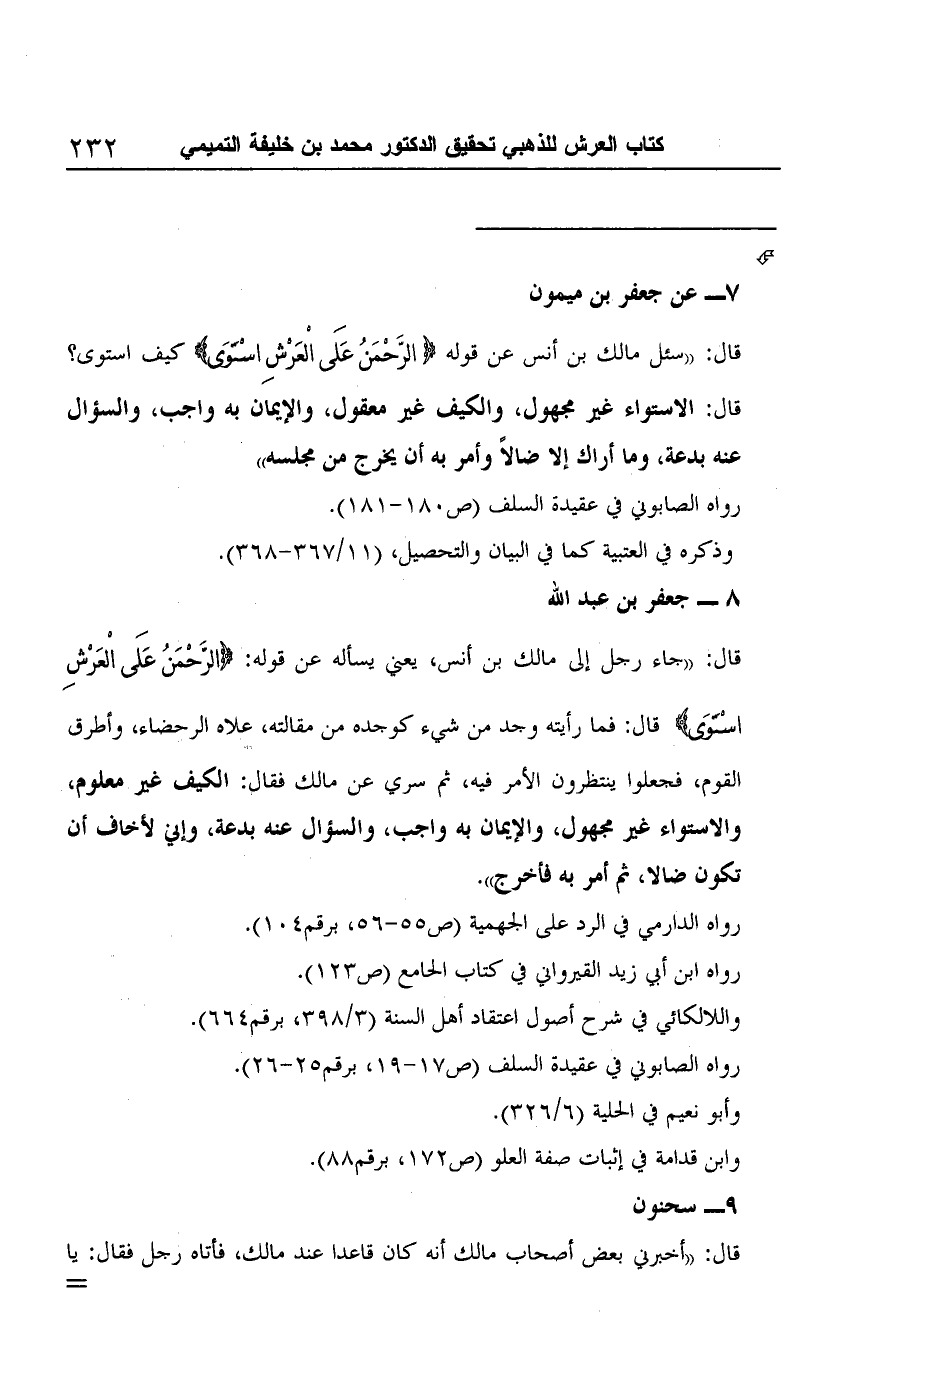 كتاب العرش للذهبي تحقيق الدكتور محمد بن خليفة التميمي ٢٣٢
٧ــ عن جعفر بن ميمون
قال: «سئل مالك بن أنس عن قوله ﴿الرَّحْمَنُ عَلَى الْعَرْشِ اسْتَوَى﴾ كيف استوى؟
قال: الاستواء غير مجهول، والكيف غير معقول، والإيمان به واجب، والسؤال
عنه بدعة، وما أراك إلا ضالاً وأمر به أن يخرج من مجلسه»
رواه الصابوني في عقيدة السلف (ص١٨٠-١٨١).
وذكره في العتبية كما في البيان والتحصيل، (٣٦٧/١١-٣٦٨).
٨ ــ جعفر بن عبد الله
قال: «جاء رجل إلى مالك بن أنس، يعني يسأله عن قوله: ﴿الرَّحْمَنُ عَلَى الْعَرْشِ
اسْتَوَى﴾ قال: فما رأيته وجد من شيء كوجده من مقالته، علاه الرحضاء، وأطرق
القوم، فجعلوا ينتظرون الأمر فيه، ثم سري عن مالك فقال: الكيف غير معلوم،
والاستواء غير مجهول، والإيمان به واجب، والسؤال عنه بدعة، وإني لأخاف أن
تكون ضالا، ثم أمر به فأخرج».
رواه الدارمي في الرد على الجهمية (ص٥٥-٥٦، برقم١٠٤).
رواه ابن أبي زيد القيرواني في كتاب الجامع (ص١٢٣).
واللالكائي في شرح أصول اعتقاد أهل السنة (٣٩٨/٣، برقم٦٦٤).
رواه الصابوني في عقيدة السلف (ص١٧-١٩، برقم٢٥-٢٦).
وأبو نعيم في الحلية (٣٢٦/٦).
وابن قدامة في إثبات صفة العلو (ص١٧٢، برقم٨٨).
٩ــ سحنون
قال: «أخبرني بعض أصحاب مالك أنه كان قاعدا عند مالك، فأتاه رجل فقال: يا
=